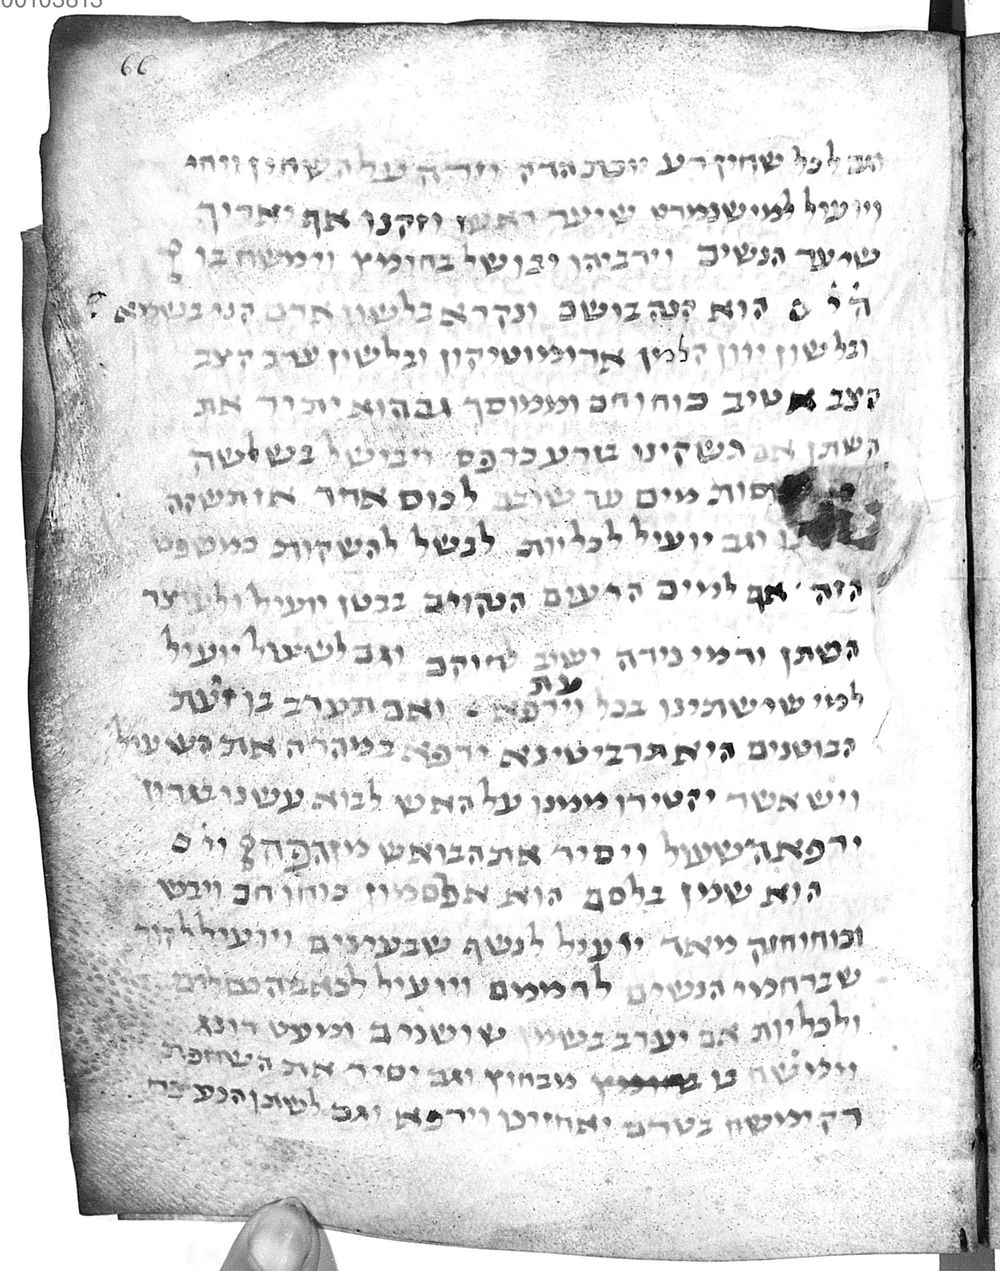 00103813
66
הם לכל שחין רע יוכת הדק ויזרה על השחין ויחי
ויועיל למי שנמרט שיער ראשו וזקנו אף יאריך
שיער הנשים וירביהו יבושל בחומץ וימשח בו
ה י ם הוא קנה בושם ונקרא בלשון ארם קני בשמא
ובלשון יוון קלמן ארומטיקון ובלשון ערב קצב
קצב א טיב כוחו חם וממוסך גם הוא יתיר את
השתן אם תשקינו בזרע כרפס ויבושל בשלשה
כוסות מים עד שובם לכוס אחד אז תשקה
וגם יועיל לכליות לבשל להשקות כמשפט
הזה אף למים הרעים הנקוים בבטן יועיל ולעוצר
השתן ודמי נידה ישוב חוקם וגם לשיעול יועיל
למי שישתינו בכל עת וירפא ואם תערב בו זעת
הבוטנים היא תרביטינא ירפא במהרה את השעול
ויש אשר יקטירו ממנו על האש לבוא עשנו
ירפא השעול ויסיר את הבואש מן
הוא שמן בלסם הוא אפלסמון כוחו חם ויבש
וכוחו חזק מאד יועיל לנשף שבעינים ויועיל לקור
שברחמי הנשים לחממם ויועיל לכאב
ולכליות אם יערב בשמן שושנים ומעט דונג
וימשח בו מבחוץ וגם יסיר את השחפת
רק ימשח בטרם יאחזינו וירפא וגם לשתן הנעצר